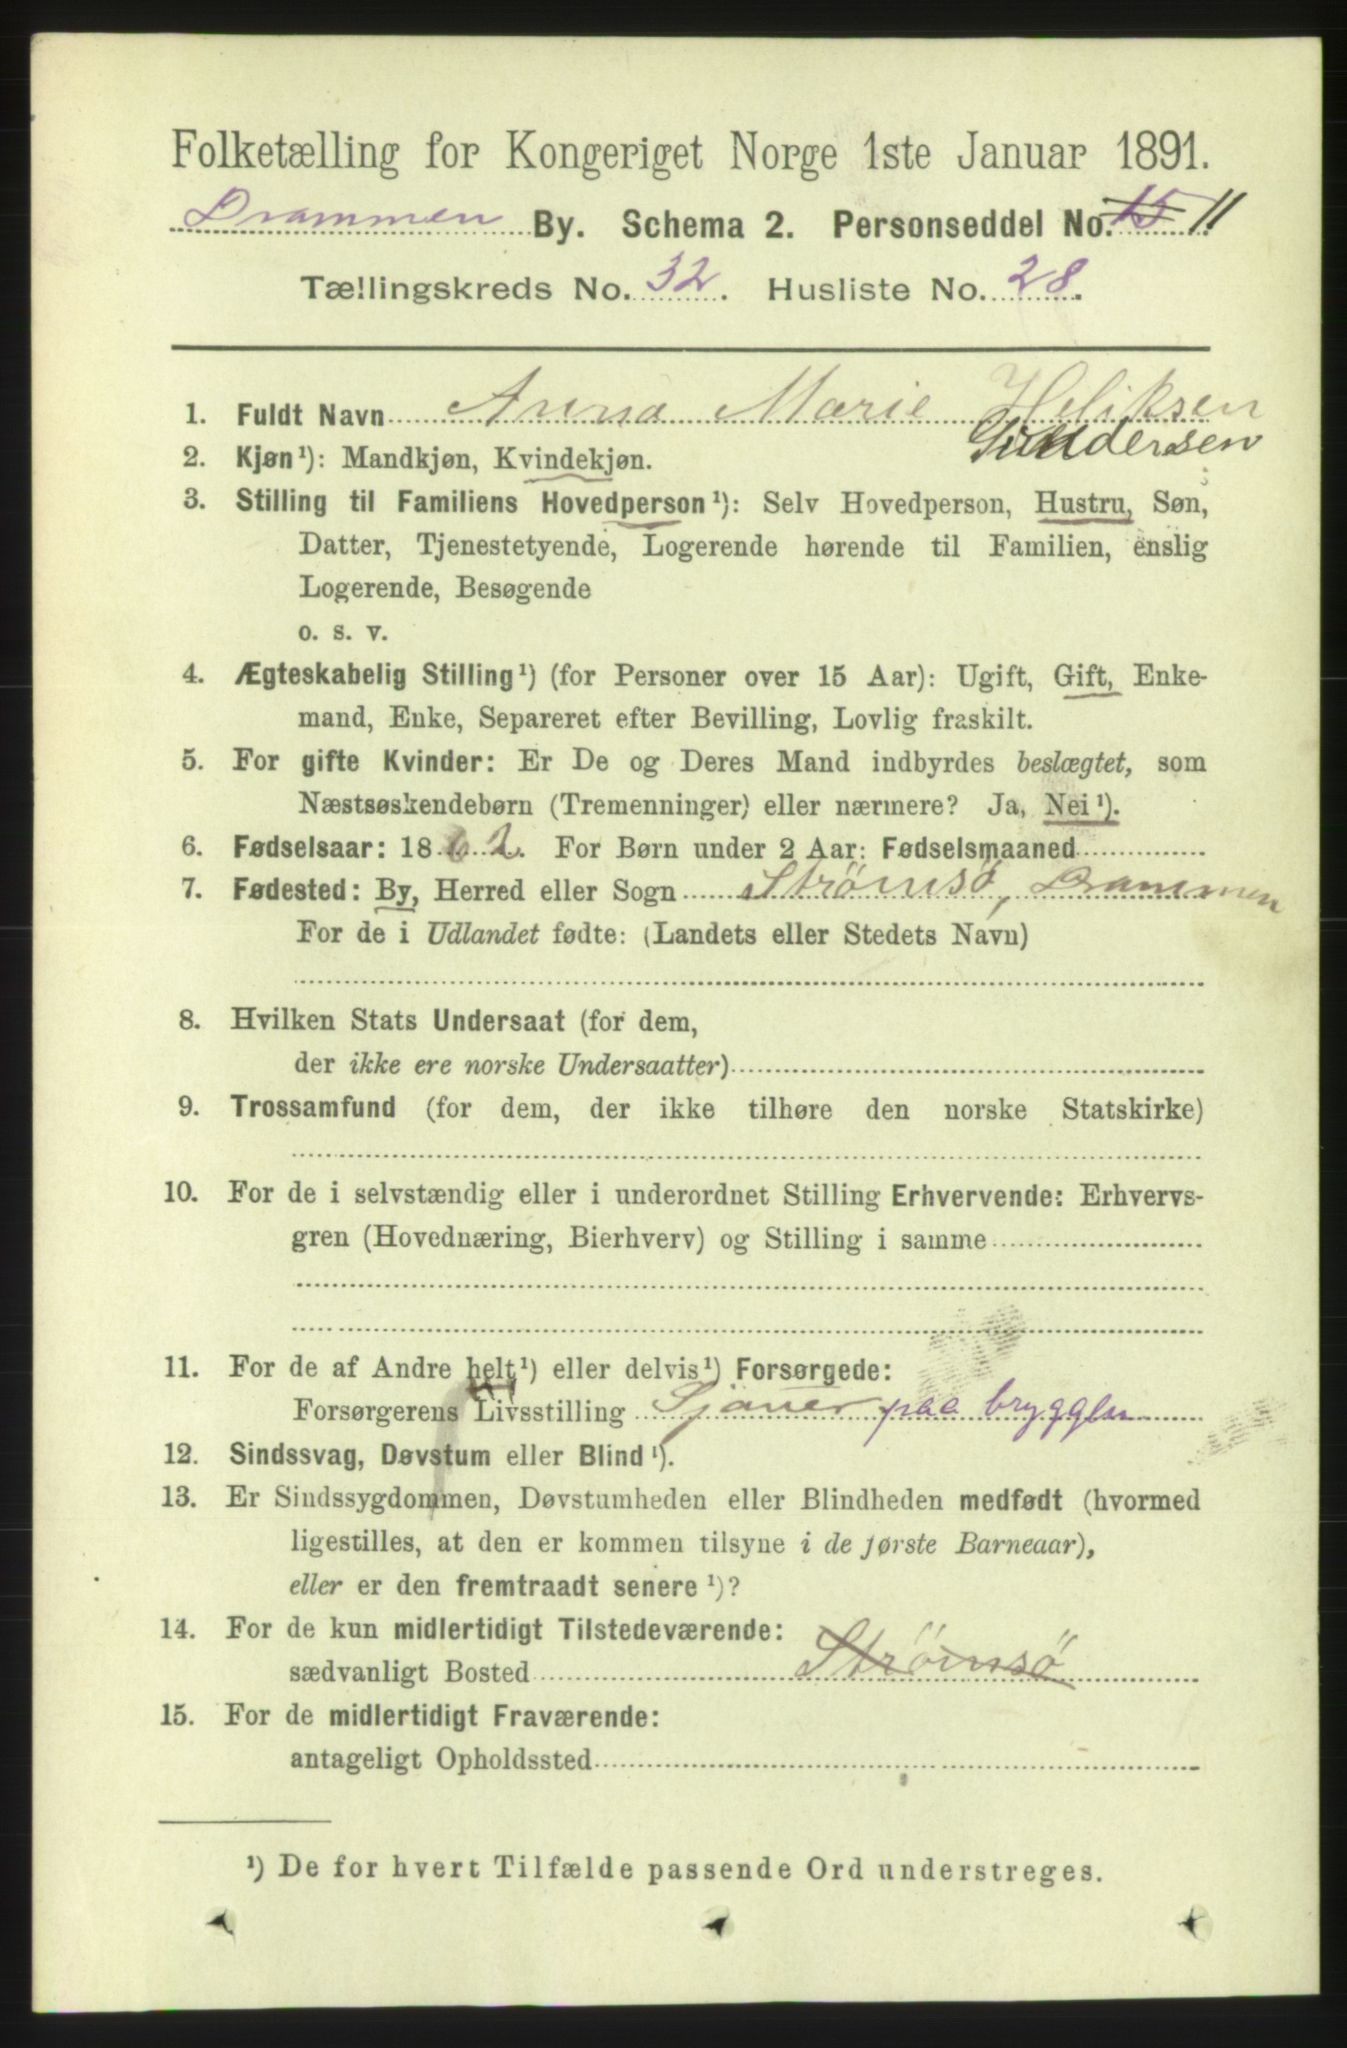 Folketælling for Kongeriget Norge 1ste Januar 1891.
Drammen By. Schema 2. Personseddel No. 15 11
Tællingskreds No. 32. Husliste No. 28.
1. Fuldt Navn Anna Marie Heliksen
Gundersen
2. Kjøn¹): Mandkjøn, Kvindekjøn.
3. Stilling til Familiens Hovedperson¹): Selv Hovedperson, Hustru, Søn,
Datter, Tjenestetyende, Logerende hørende til Familien, enslig
Logerende, Besøgende
o. s. v.
4. Ægteskabelig Stilling¹) (for Personer over 15 Aar): Ugift, Gift, Enke-
mand, Enke, Separeret efter Bevilling, Lovlig fraskilt.
5. For gifte Kvinder: Er De og Deres Mand indbyrdes beslægtet, som
Næstsøskendebørn (Tremenninger) eller nærmere? Ja, Nei¹).
6. Fødselsaar: 1862. For Børn under 2 Aar: Fødselsmaaned
7. Fødested: By, Herred eller Sogn Strømsø, Drammen
For de i Udlandet fødte: (Landets eller Stedets Navn)
8. Hvilken Stats Undersaat (for dem,
der ikke ere norske Undersaatter)
9. Trossamfund (for dem, der ikke tilhøre den norske Statskirke)
10. For de i selvstændig eller i underordnet Stilling Erhvervende: Erhvervs-
gren (Hovednæring, Bierhverv) og Stilling i samme
11. For de af Andre helt¹) eller delvis¹) Forsørgede:
Forsørgerens Livsstilling Sjauer paa bryggen
12. Sindssvag, Døvstum eller Blind¹).
13. Er Sindssygdommen, Døvstumheden eller Blindheden medfødt (hvormed
ligestilles, at den er kommen tilsyne i de første Barneaar),
eller er den fremtraadt senere¹)?
14. For de kun midlertidigt Tilstedeværende:
sædvanligt Bosted Strømsø
15. For de midlertidigt Fraværende:
antageligt Opholdssted
¹) De for hvert Tilfælde passende Ord understreges.